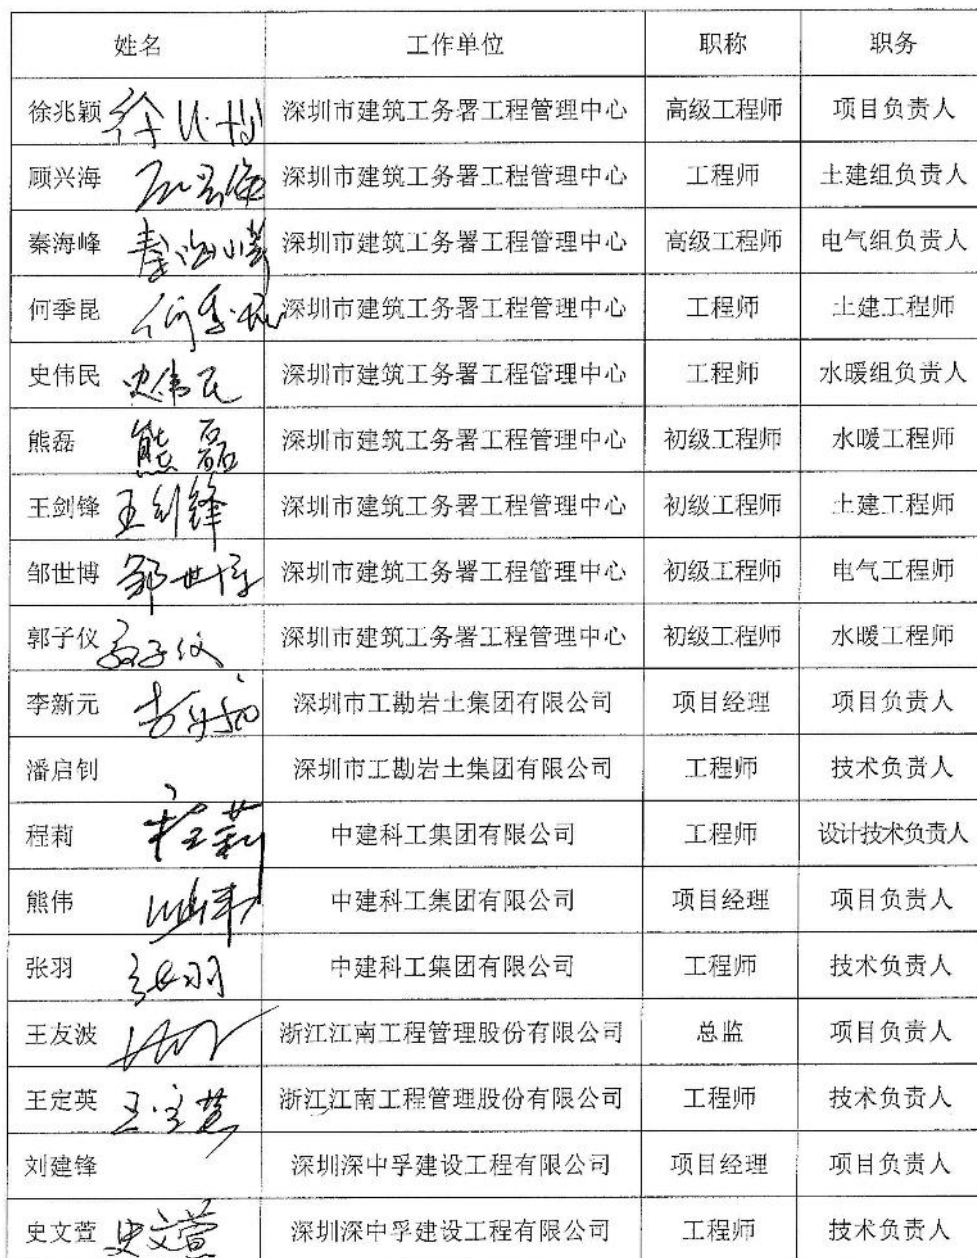 姓名 工作单位 职称 职务
徐兆颖 深圳市建筑工务署工程管理中心 高级工程师 项目负责人
顾兴海 深圳市建筑工务署工程管理中心 工程师 土建组负责人
秦海峰 秦海峰 深圳市建筑工务署工程管理中心 高级工程师 电气组负责人
何季昆 何季昆 深圳市建筑工务署工程管理中心 工程师 土建工程师
史伟民 史伟民 深圳市建筑工务署工程管理中心 工程师 水暖组负责人
熊磊 熊磊 深圳市建筑工务署工程管理中心 初级工程师 水暖工程师
王剑锋 王剑锋 深圳市建筑工务署工程管理中心 初级工程师 土建工程师
邹世博 邹世博 深圳市建筑工务署工程管理中心 初级工程师 电气工程师
郭子仪 郭子仪 深圳市建筑工务署工程管理中心 初级工程师 水暖工程师
李新元 深圳市工勘岩土集团有限公司 项目经理 项目负责人
潘启钊 深圳市工勘岩土集团有限公司 工程师 技术负责人
程莉 程莉 中建科工集团有限公司 工程师 设计技术负责人
熊伟 中建科工集团有限公司 项目经理 项目负责人
张羽 张羽 中建科工集团有限公司 工程师 技术负责人
王友波 浙江江南工程管理股份有限公司 总监 项目负责人
王定英 王定英 浙江江南工程管理股份有限公司 工程师 技术负责人
刘建锋 深圳深中孚建设工程有限公司 项目经理 项目负责人
史文萱 史文萱 深圳深中孚建设工程有限公司 工程师 技术负责人